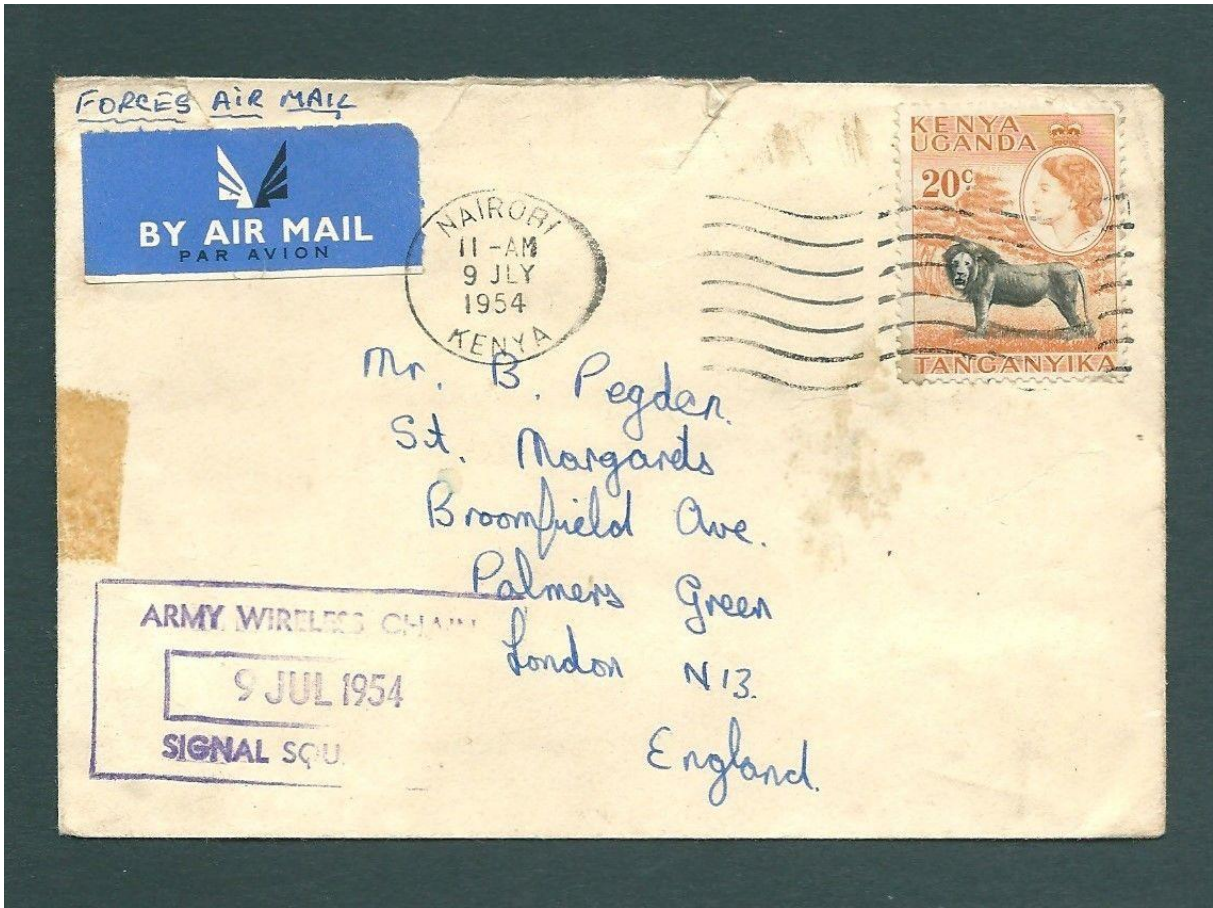 FORCES AIR MAIL
BY AIR MAIL
PAR AVION
NAIROBI
11-AM
9 JLY
1954
KENYA
KENYA
UGANDA
20c
TANGANYIKA
Mr. B. Pegden.
St. Margards
Broomfield Ave.
Palmers Green
London N13.
England.
ARMY WIRELESS CHAIN
9 JUL 1954
SIGNAL SQU